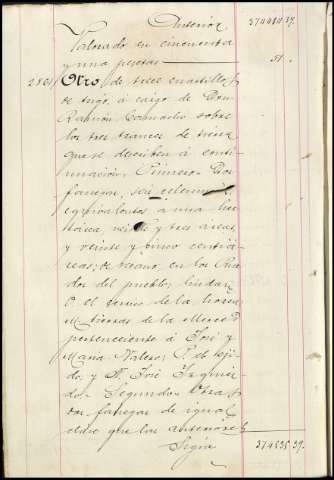 Anterior 374484.37.
Valorado en cincuenta
y una pesetas 51.
2861 Otro de trece cuartillos
de trigo, á cargo de Don
Ramón sobre
los tres trances de tierra
que se describen á conti-
nuación. Primero. Dos
fanegas, seis celemines,
equivalentes á una hec-
tárea, veinte y tres áreas,
y veinte y cinco centiá-
reas; de secano, en los
del pueblo; lindan
O. el de la
M. tierras de la Merced
perteneciente á José y
María Valero; P.
do, y N. José Izquier-
do. Segundo. Otra, de
dos fanegas de igual
clase que las anteriores
Sigue 374535.37.